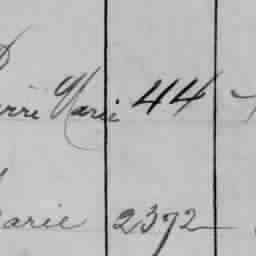 Marie 44
arie 2372